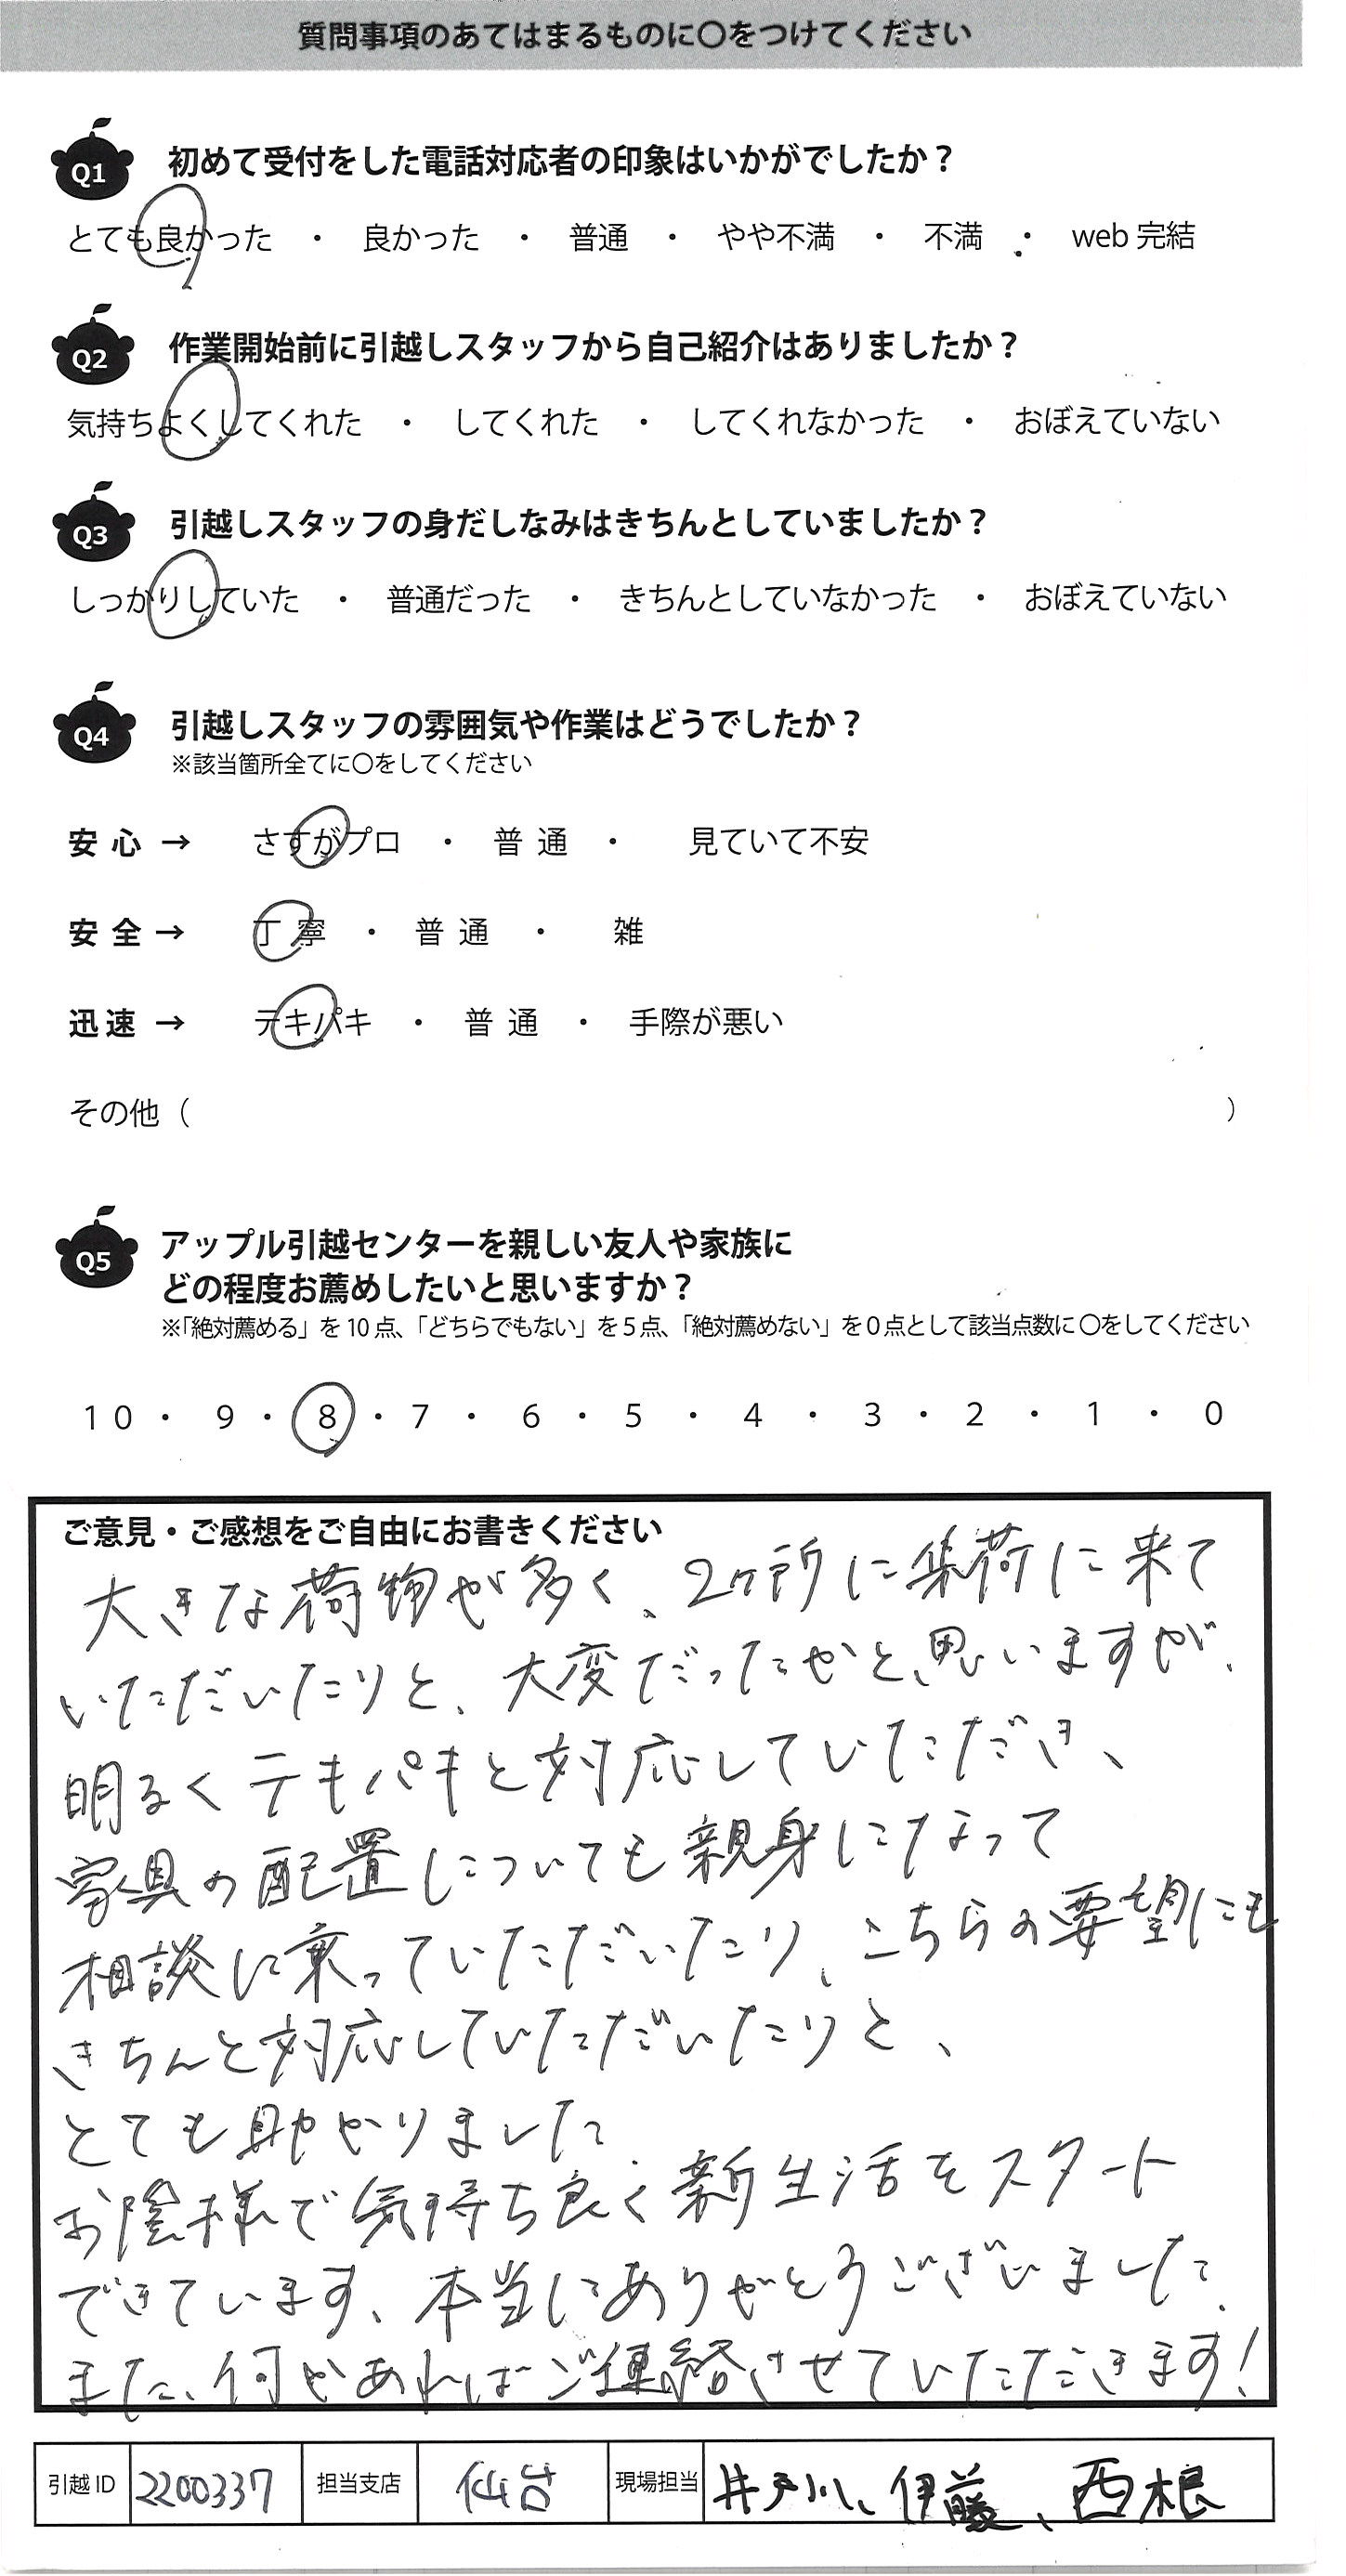 質問事項のあてはまるものに〇をつけてください
Q1 初めて受付をした電話対応者の印象はいかがでしたか？
とても良かった ・ 良かった ・ 普通 ・ やや不満 ・ 不満 ・ web 完結
Q2 作業開始前に引越しスタッフから自己紹介はありましたか？
気持ちよくしてくれた ・ してくれた ・ してくれなかった ・ おぼえていない
Q3 引越しスタッフの身だしなみはきちんとしていましたか？
しっかりしていた ・ 普通だった ・ きちんとしていなかった ・ おぼえていない
Q4 引越しスタッフの雰囲気や作業はどうでしたか？
※該当箇所全てに〇をしてください
安心 → さすがプロ ・ 普通 ・ 見ていて不安
安全 → 丁寧 ・ 普通 ・ 雑
迅速 → テキパキ ・ 普通 ・ 手際が悪い
その他（ ）
Q5 アップル引越センターを親しい友人や家族に
どの程度お薦めしたいと思いますか？
※「絶対薦める」を10点、「どちらでもない」を5点、「絶対薦めない」を0点として該当点数に〇をしてください
10 ・ 9 ・ 8 ・ 7 ・ 6 ・ 5 ・ 4 ・ 3 ・ 2 ・ 1 ・ 0
ご意見・ご感想をご自由にお書きください
大きな荷物が多く、2ヶ所に集荷に来て
いただいたりと、大変だったかと思いますが、
明るくテキパキと対応していただき、
家具の配置についても親身になって
相談に乗っていただいたり、こちらの要望にも
きちんと対応していただいたりと、
とても助かりました。
お陰様で気持ち良く新生活をスタート
できています、本当にありがとうございました。
また、何かあればご連絡させていただきます！
引越ID 2200337 担当支店 仙台 現場担当 井戸川、伊藤、西根